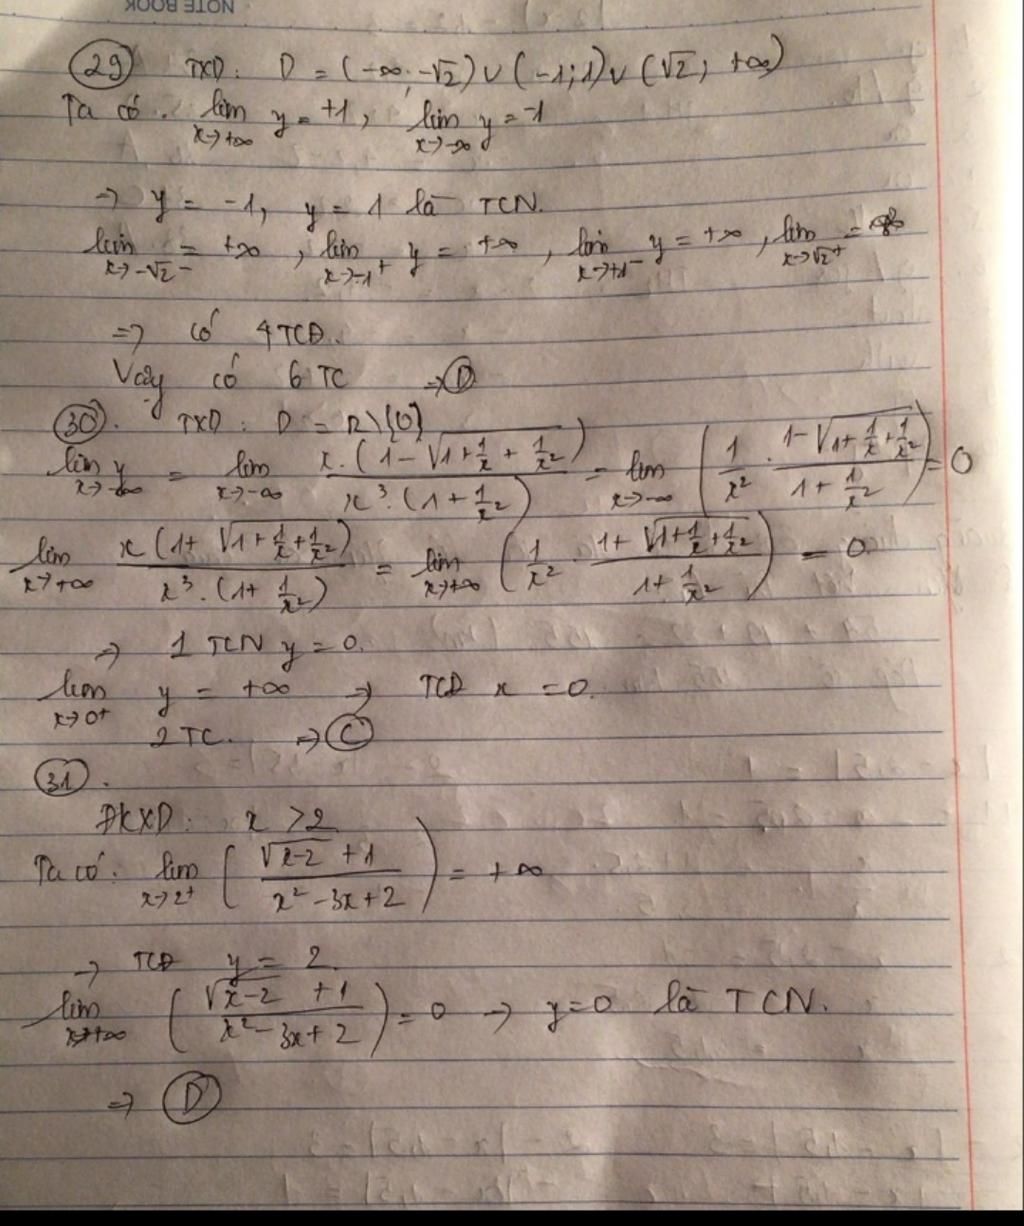 NOTE BOOK
29 TXD: D = (-∞; -√2) ∪ (-1; 1) ∪ (√2; +∞)
Ta có. lim x→+∞ y = +1, lim x→-∞ y = -1
→ y = -1, y = 1 là TCN.
lim x→-√2⁻ = +∞, lim x→-1⁺ y = +∞, lim x→+1⁻ y = +∞, lim x→√2⁺ =
⇒ có 4 TCĐ.
Vậy có 6 TC → D
30. TXD: D = R\{0}
lim x→-∞ y = lim x→-∞ x.(1-√(1+1/x+1/x²)) / x³.(1+1/x²) = lim x→-∞ (1/x² . (1-√(1+1/x+1/x²)) / (1+1/x²)) = 0
lim x→+∞ x(1+√(1+1/x+1/x²)) / x³.(1+1/x²) = lim x→+∞ (1/x² . (1+√(1+1/x+1/x²)) / (1+1/x²)) = 0.
⇒ 1 TCN y = 0.
lim x→0⁺ y = +∞ ⇒ TCĐ x = 0.
2 TC. ⇒ C
31.
ĐKXD: x > 2
Ta có: lim x→2⁺ ((√(x-2) + 1) / (x² - 3x + 2)) = +∞
→ TCĐ y = 2.
lim x→+∞ ((√(x-2) + 1) / (x² - 3x + 2)) = 0 → y = 0 là TCN.
⇒ D